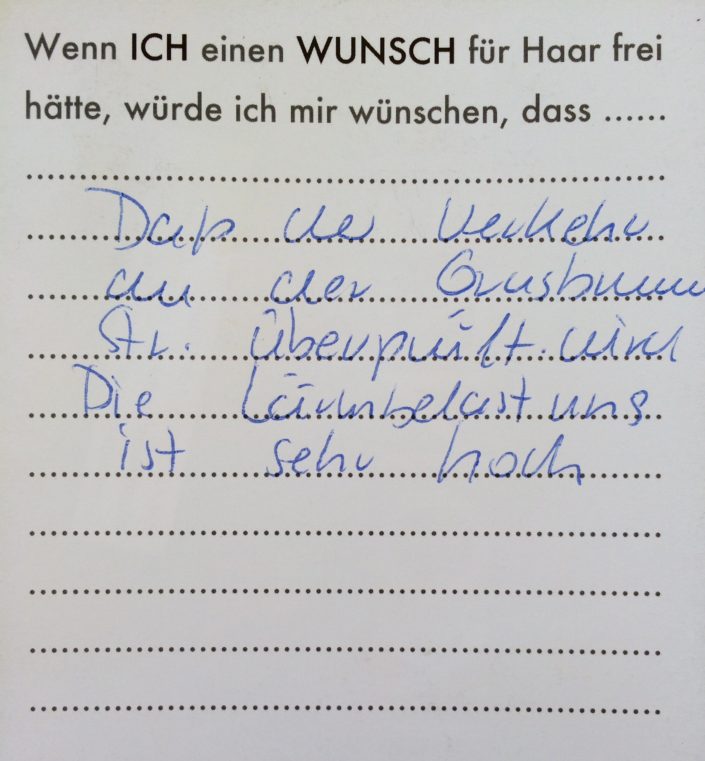 Wenn ICH einen WUNSCH für Haar frei
hätte, würde ich mir wünschen, dass ......
Daß der Verkehr
an der Grasbrunn
Str. überprüft wird
Die Lärmbelastung
ist sehr hoch